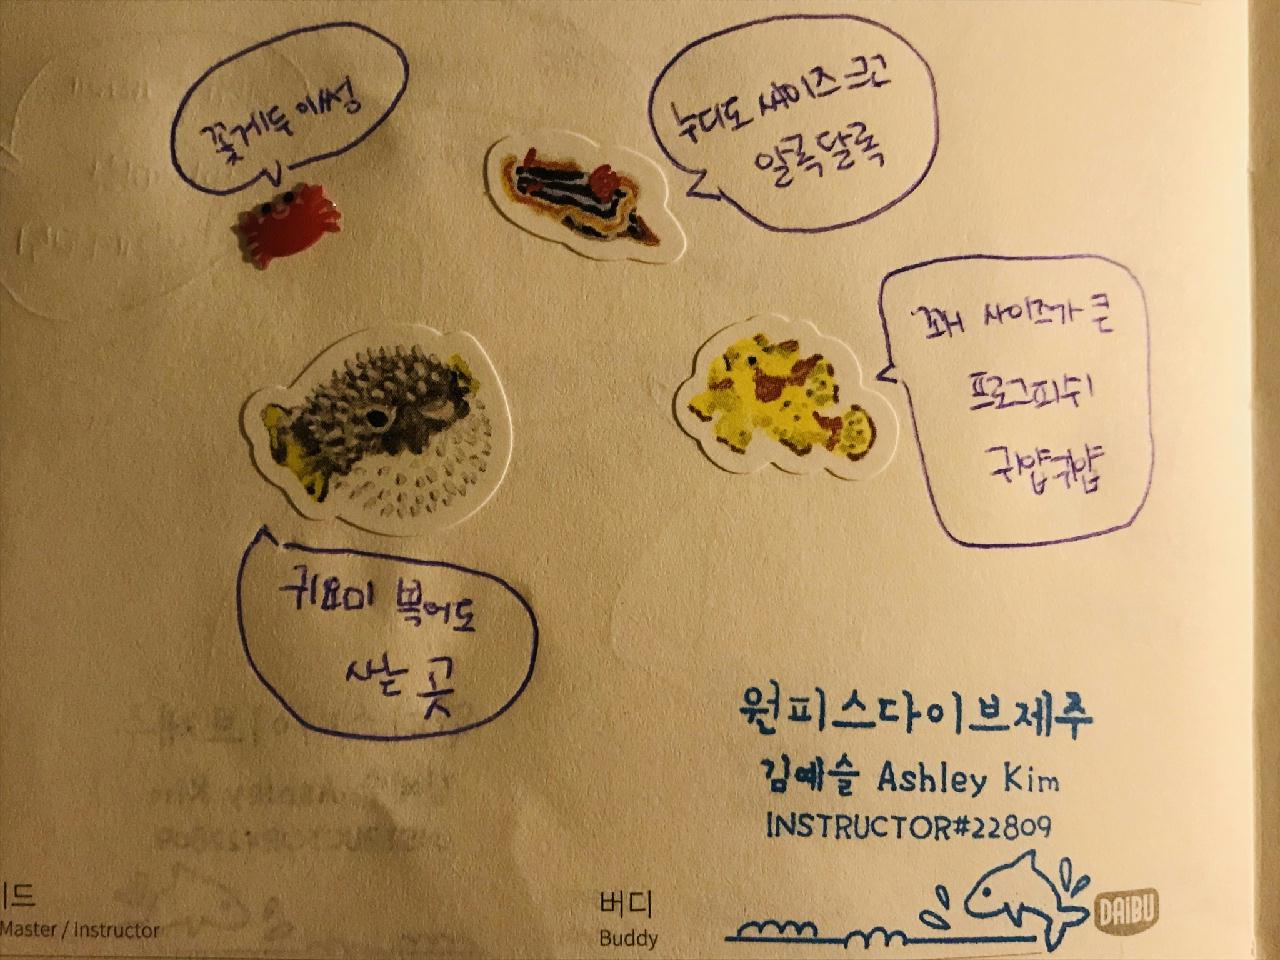 꽃게두 이써
누디도 싸이즈 크고
알록달록
꽤 사이즈가 큰
프로그피쉬
귀얍귀얍
귀요미 복어도
사는 곳
원피스다이브제주
김예슬 Ashley Kim
INSTRUCTOR#22809
이드
Master / Instructor
버디
Buddy
DAiBU